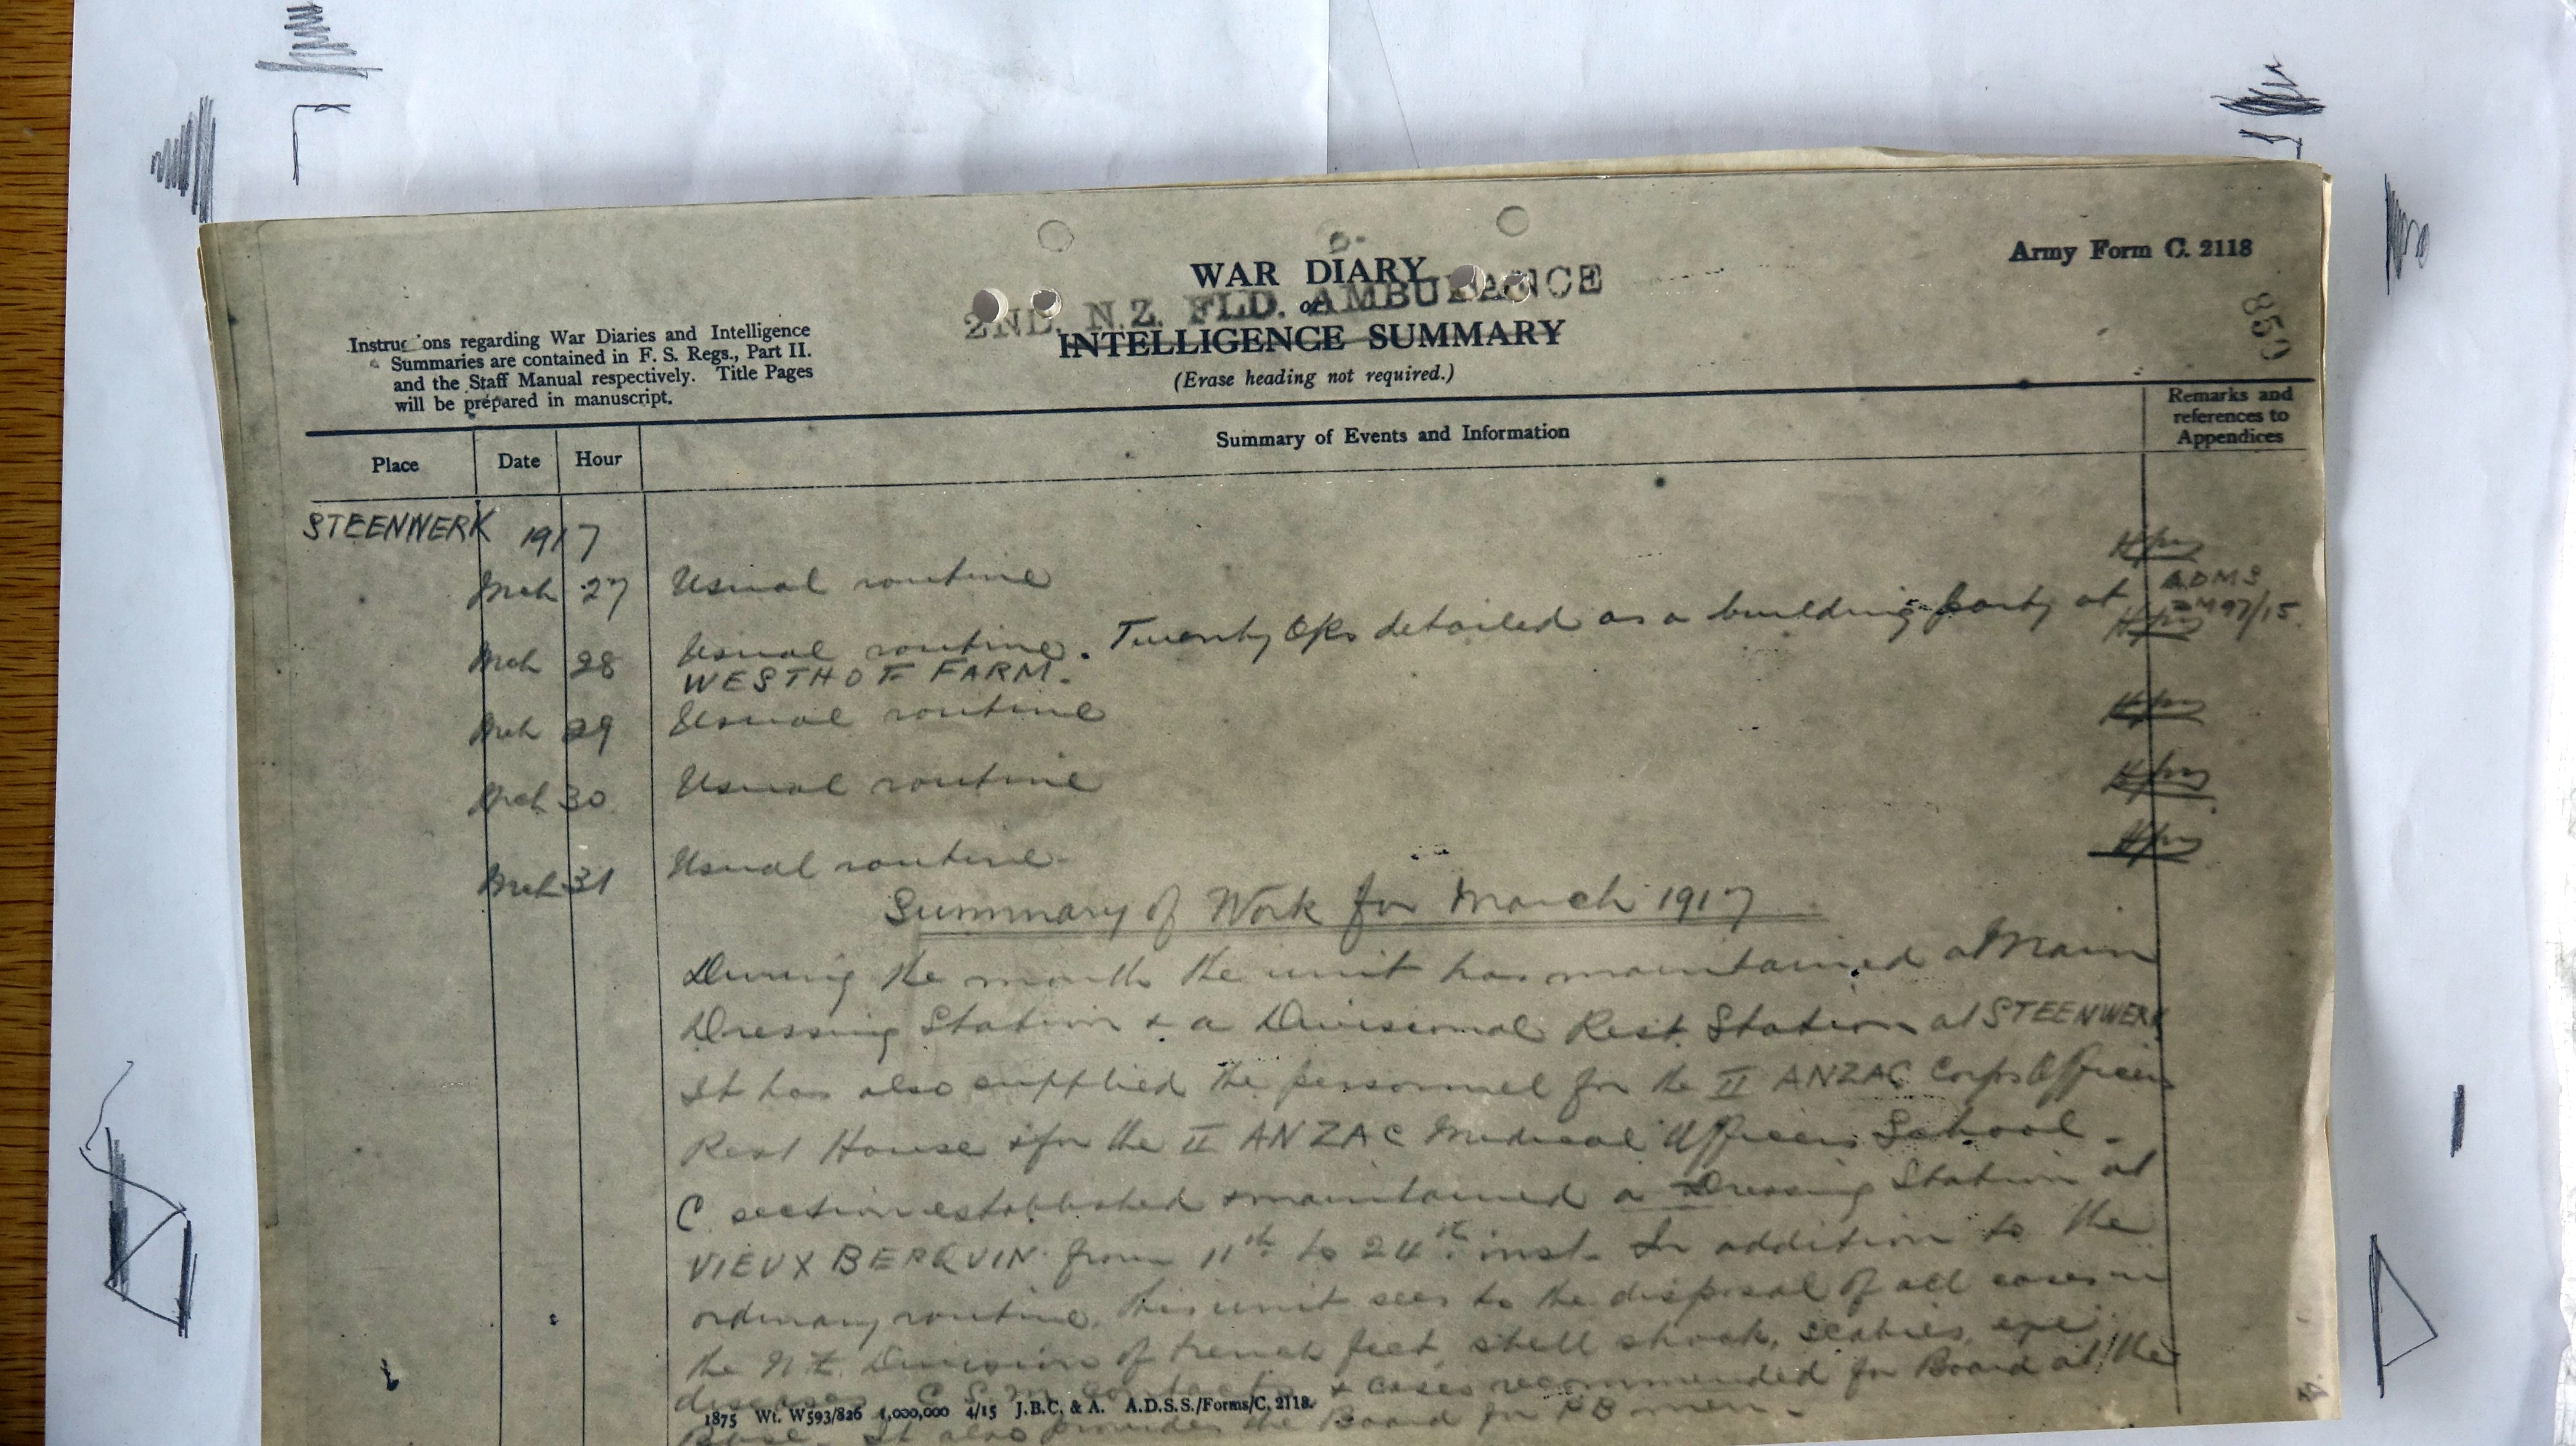 Army Form C. 2118
859
WAR DIARY
or
2ND. N.Z. FLD. AMBULANCE
INTELLIGENCE SUMMARY
(Erase heading not required.)
Instruc ons regarding War Diaries and Intelligence
Summaries are contained in F. S. Regs., Part II.
and the Staff Manual respectively. Title Pages
will be prepared in manuscript.
Place Date Hour Summary of Events and Information
Remarks and
references to
Appendices
STEENWERK 1917
Mch 27 Usual routine
ADMS
97/15
Mch 28 Usual routine. Twenty ORs detailed as a building party at
WESTHOF FARM.
Mch 29 Usual routine
Mch 30 Usual routine
Mch 31 Usual routine
Summary of Work for March 1917
During the month the unit has maintained a Main
Dressing Station & a Divisional Rest Station at STEENWERK
It has also supplied the personnel for the II ANZAC Corps Officers
Rest House & for the II ANZAC Medical Officers School.
C section established & maintained a Dressing Station at
VIEUX BERQUIN from 11th to 24th inst. In addition to the
ordinary routine, this unit sees to the disposal of all cases in
the N.Z. Division of trench feet, shell shock, scabies, eye
diseases, C.S.M. contacts & cases recommended for Board at the
Base. It also provides the Board for PB men.
1875 Wt. W593/826 1,000,000 4/15 J.B.C. & A. A.D.S.S./Forms/C. 2118.